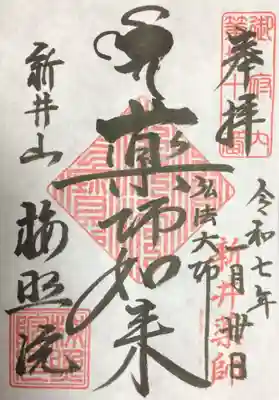 奉拝
御府内
第七十一番
令和七年
一月廿日
新井薬師
弘法大師
薬師如来
新井山
梅照院